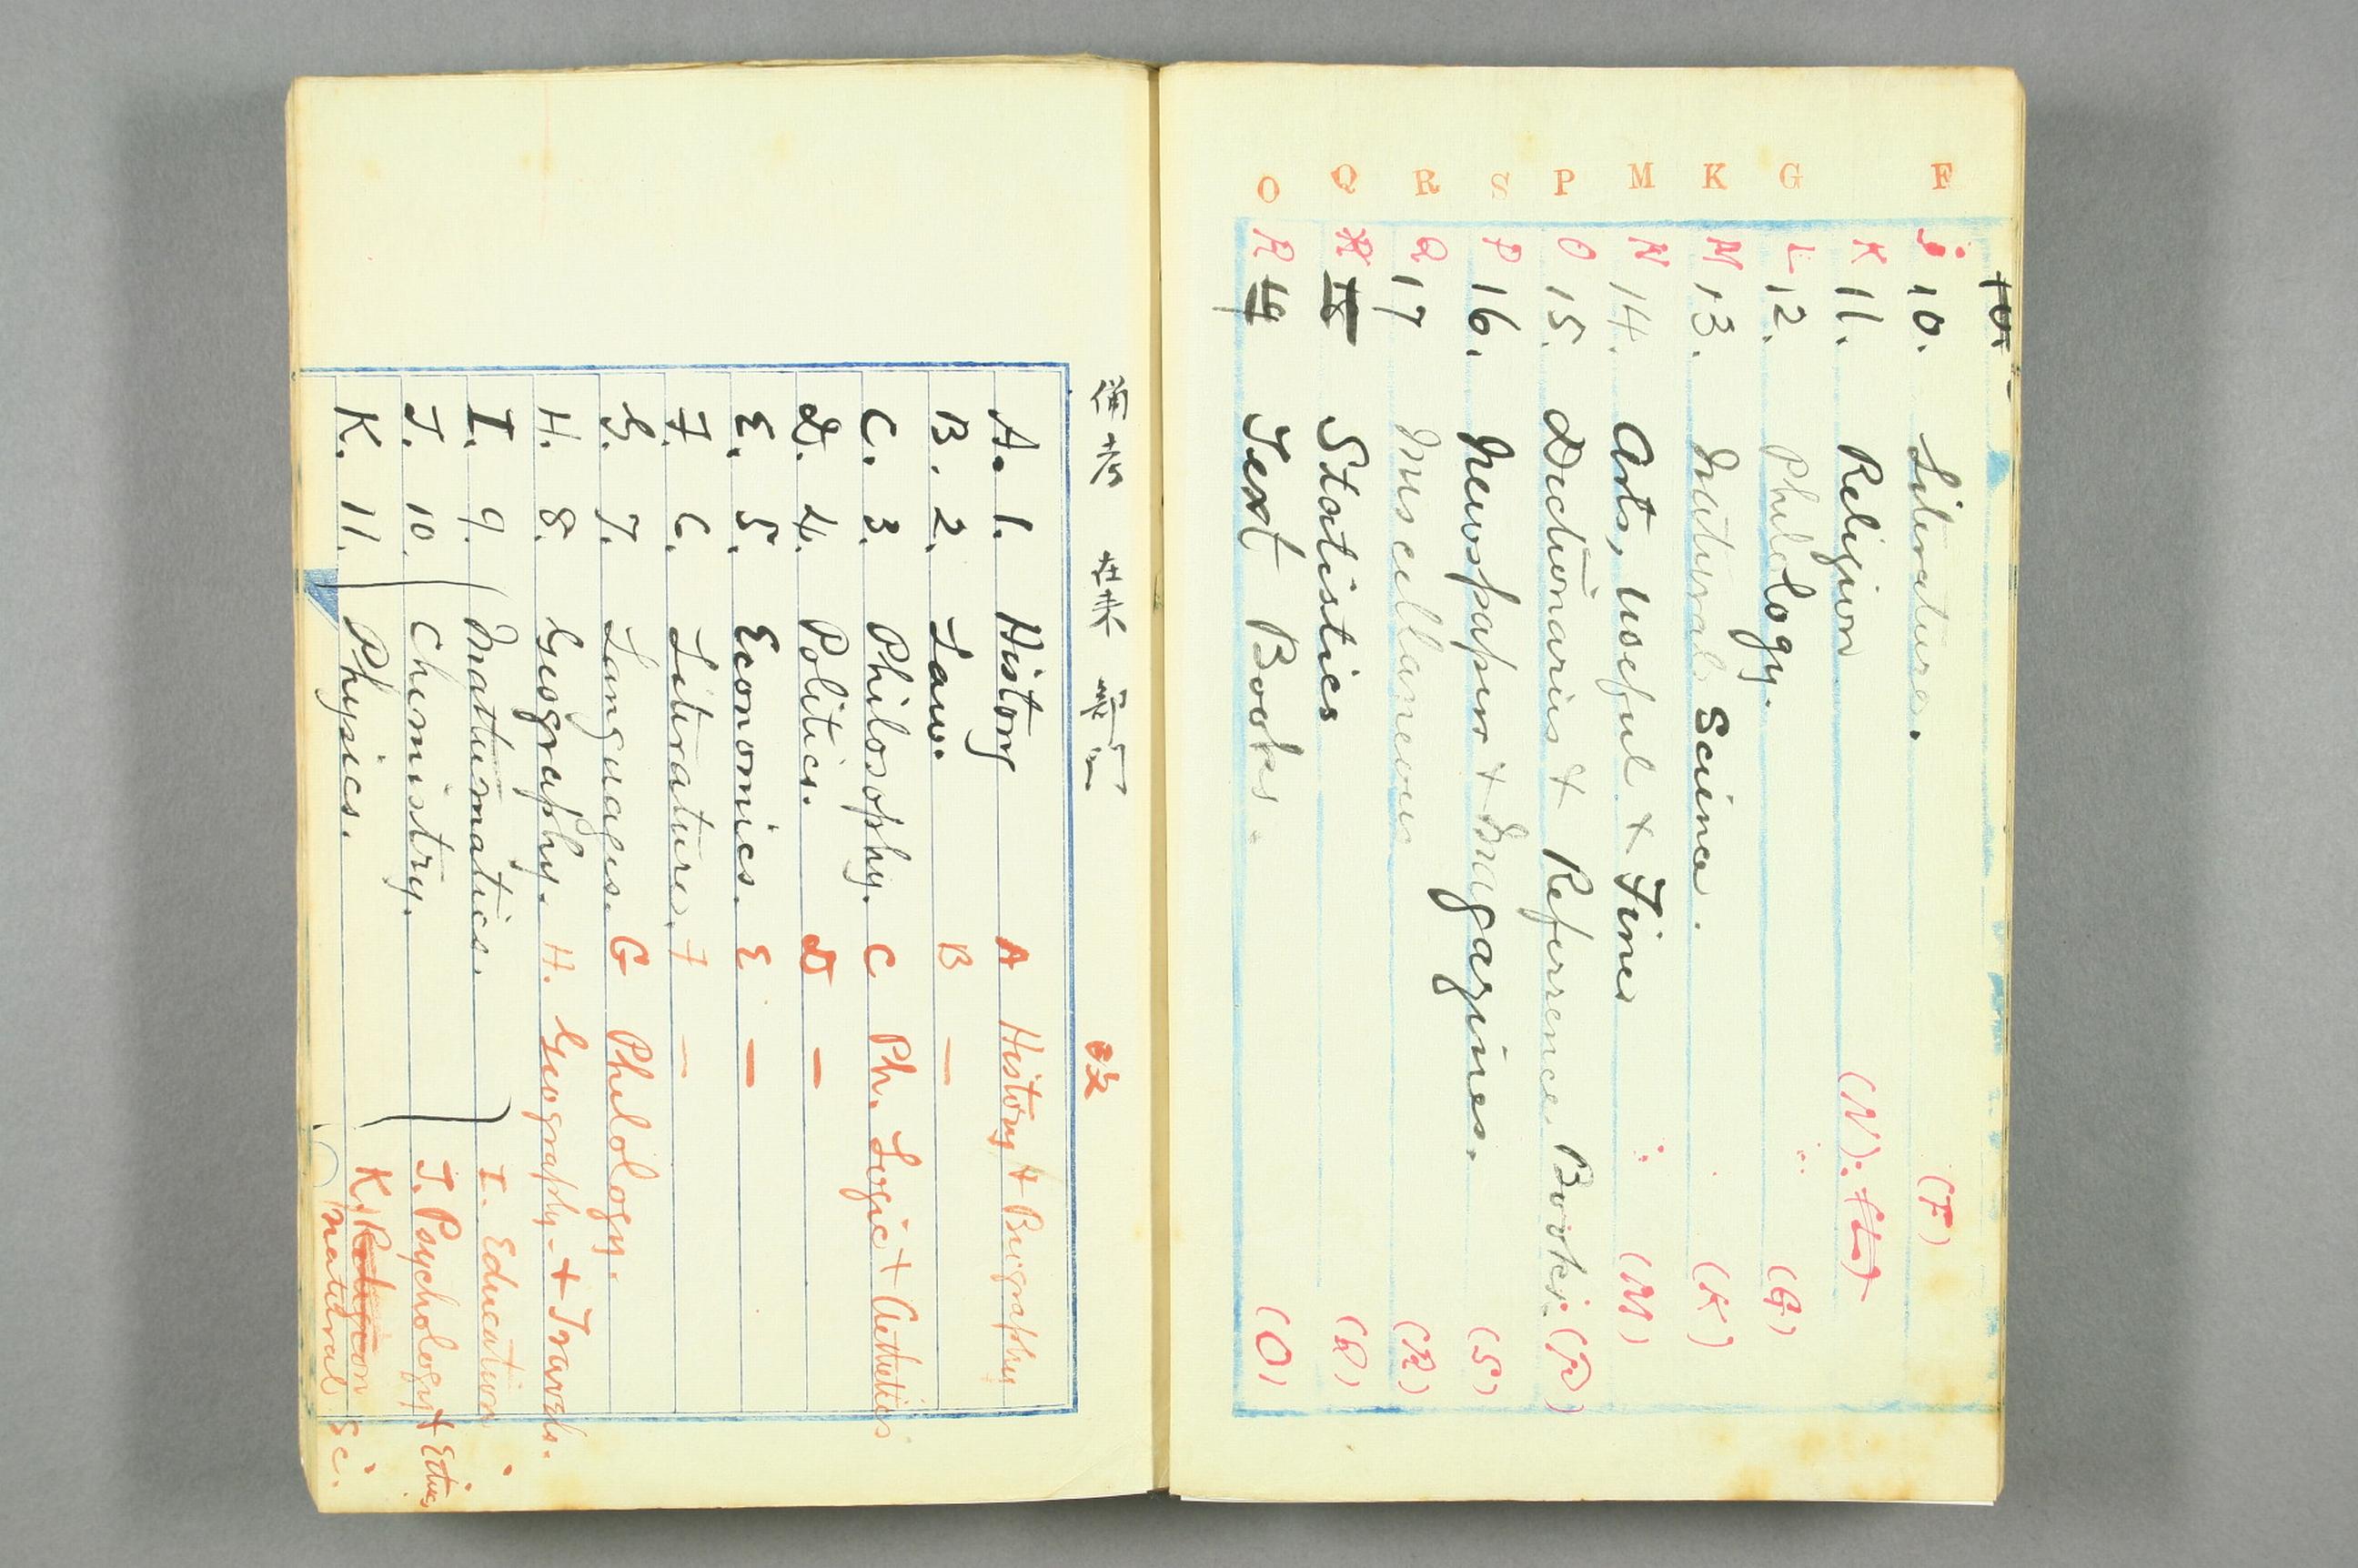 10.
F J. 10. Literature. (F)
K 11. Religion (N). (L)
G L 12. Philology. (G)
K M 13. Natural Science. (K)
M N 14. Arts, Useful & Fine (M)
P O 15. Dictionaries & Referrence Books. (P)
S P 16. Newspaper & Magazines. (S)
R Q 17 Miscellaneous (R)
Q R 18 Statistics (Q)
O R 19 Text Books. (O)
備考 在来 改
A. 1. History A History & Biography
B. 2. Law. B —
C. 3. Philosophy. C Ph. Logic & Aethetics
D. 4. Politics. D —
E. 5. Economics. E —
F. 6. Literature. F —
G. 7. Languages. G Philology.
H. 8. Geography. H. Geography. & Travels.
I. 9. Mathematics. I. Education
J. 10. Chemistry. J. Psychology & Ethics
K. 11. Physics. K. Religion
Natural Sc.